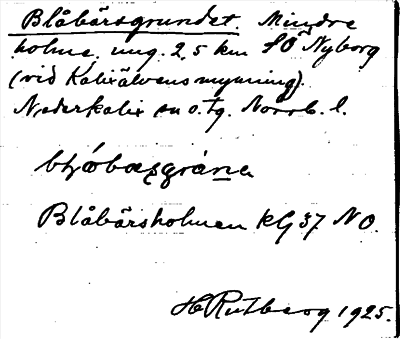 Blåbärsgrundet. Mindre
holme ung. 2,5 km SÖ Nyborg
(vid Kalixälvens mynning).
Nederkalix sn o. tg. Norrb. l.
Blåbärsholmen kG 37 NO.
H Rutberg 1925.